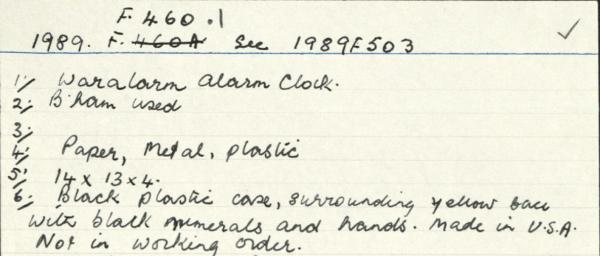 F. 460.1
1989. F. 460A See 1989F503
1; Waralarm Alarm Clock.
2; B'ham used
3;
4; Paper, Metal, plastic
5; 14 x 13 x 4.
6; Black plastic case, surrounding yellow
with black numerals and hands. Made in U.S.A.
Not in working order.